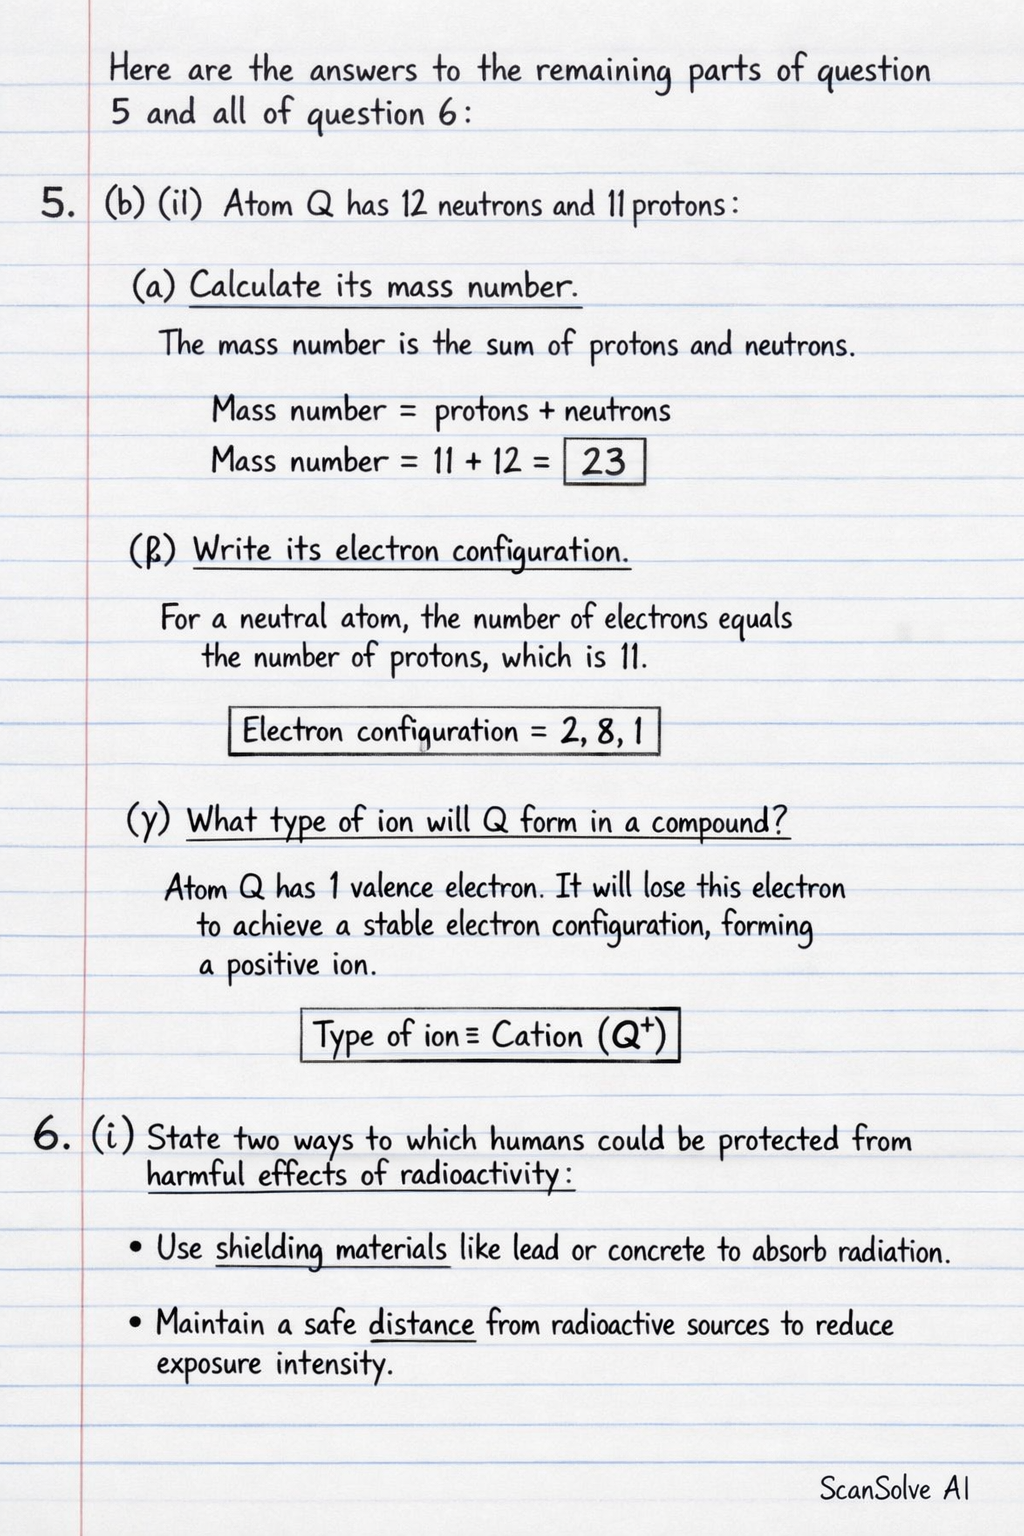 Here are the answers to the remaining parts of question
5 and all of question 6:
5. (b) (il) Atom Q has 12 neutrons and 11 protons:
(a) Calculate its mass number.
The mass number is the sum of protons and neutrons.
Mass number = protons + neutrons
Mass number = 11 + 12 = 23
(β) Write its electron configuration.
For a neutral atom, the number of electrons equals
the number of protons, which is 11.
Electron configuration = 2, 8, 1
(γ) What type of ion will Q form in a compound?
Atom Q has 1 valence electron. It will lose this electron
to achieve a stable electron configuration, forming
a positive ion.
Type of ion ≡ Cation (Q⁺)
6. (i) State two ways to which humans could be protected from
harmful effects of radioactivity:
• Use shielding materials like lead or concrete to absorb radiation.
• Maintain a safe distance from radioactive sources to reduce
exposure intensity.
ScanSolve AI